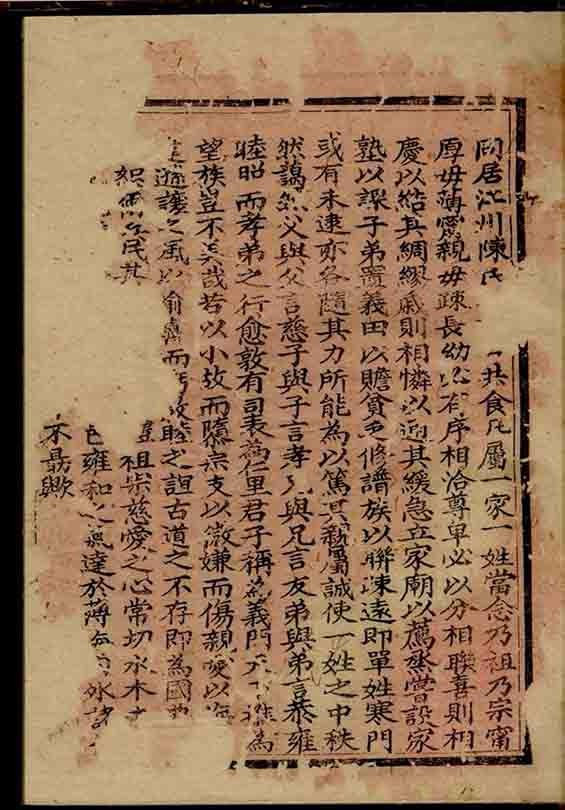 同居江州陳氏共食凡屬一家一姓當念乃祖乃宗甯
厚毋薄甯親毋疎長幼必有序相洽尊卑必以分相聯喜則相
慶以結其綢繆戚則相憐以通其緩急立家廟以薦烝嘗設家
塾以課子弟置義田以贍貧乏修譜族以聯疎遠即單姓寒門
或有未逮亦各隨其力所能為以篤其親屬誠使一姓之中秩
然藹然父與父言慈子與子言孝兄與兄言友弟與弟言恭雍
睦昭而孝弟之行愈敦有司表為仁里君子稱為義門天下為
望族豈不美哉若以小故而隳宗支以微嫌而傷親愛以
遜讓之風以偷薄而敦睦之誼古道之不存即為國
爾兵民其祖宗慈愛之心常切水木
邑雍和之氣達於薄
不勗歟